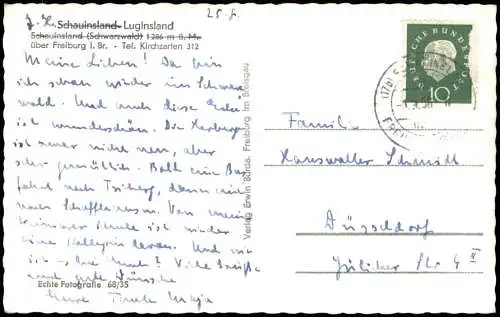 J. H. Schauinsland Luginsland
Schauinsland (Schwarzwald) 1286 m ü. M.
über Freiburg i. Br. - Tel. Kirchzarten 312
Meine Lieben! Da bin
ich schon wieder im Schwarz
wald. Und auch diese Ecke
ist wunderschön. Die Herberge
ist zwar nicht neu, aber
sehr gemütlich. Bald eine Bus
fahrt nach Triberg, dann eine
nach Schaffhausen. Von
ist wieder
eine Kollegin daran. Und wie
ist es bei Euch? Viele Grüße
und gute Wünsche
Eure Tante Maja
Echte Fotografie 68/35
Verlag Erwin Burda, Freiburg im Breisgau
DEUTSCHE BUNDESPOST
10
Familie
Hanswalter Schmidt
Düsseldorf
Jülicher Str. 4 II